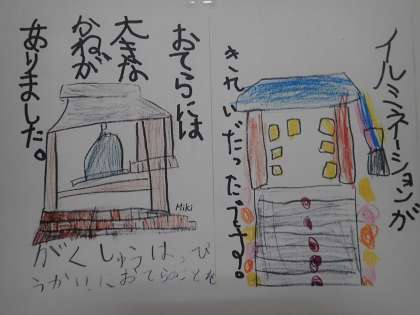 イルミネーションが
きれいたったです。
おてらには
大きな
かねが
ありました。
Miki
がくしゅうはっぴ
うかいにおてらのことを